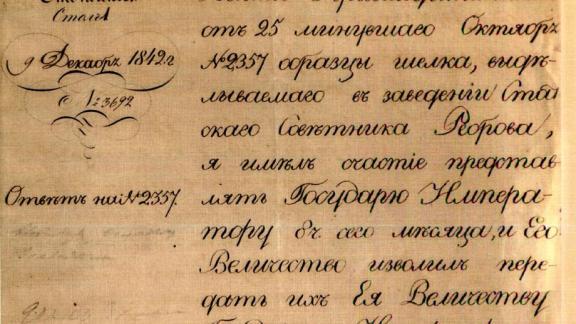 Стола
9 Декабр. 1842 г.
№ 3692
Ответъ на № 2357.
отъ 25 минувшаго Октября
№ 2357 образцы шелка, выдѣ-
лываемаго въ заведеніи Стат
скаго Совѣтника Реброва,
я имѣлъ счастіе представ
лять Государю Импера-
тору 8ъ сего мѣсяца, и Его
Величество изволилъ пере-
дать ихъ Ея Величеству